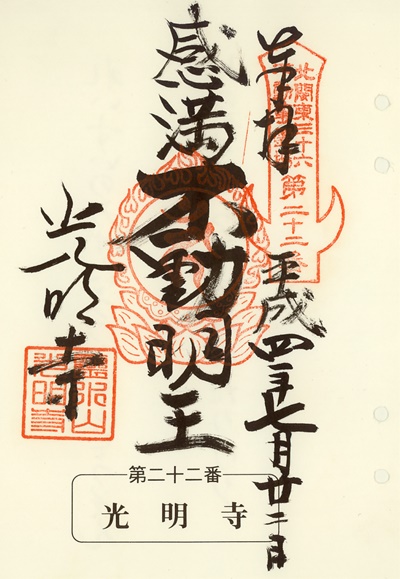 奉拝
北関東三十六
第二十二番
平成四年七月廿二日
感満
不動明王
光明寺
第二十二番
光明寺